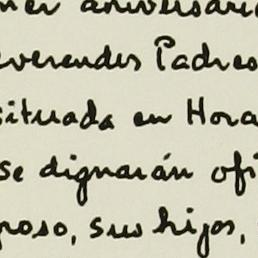 mer aniversari
everendos Padres
situada en Hora
se dignarán ofi
poso, sus hijos,